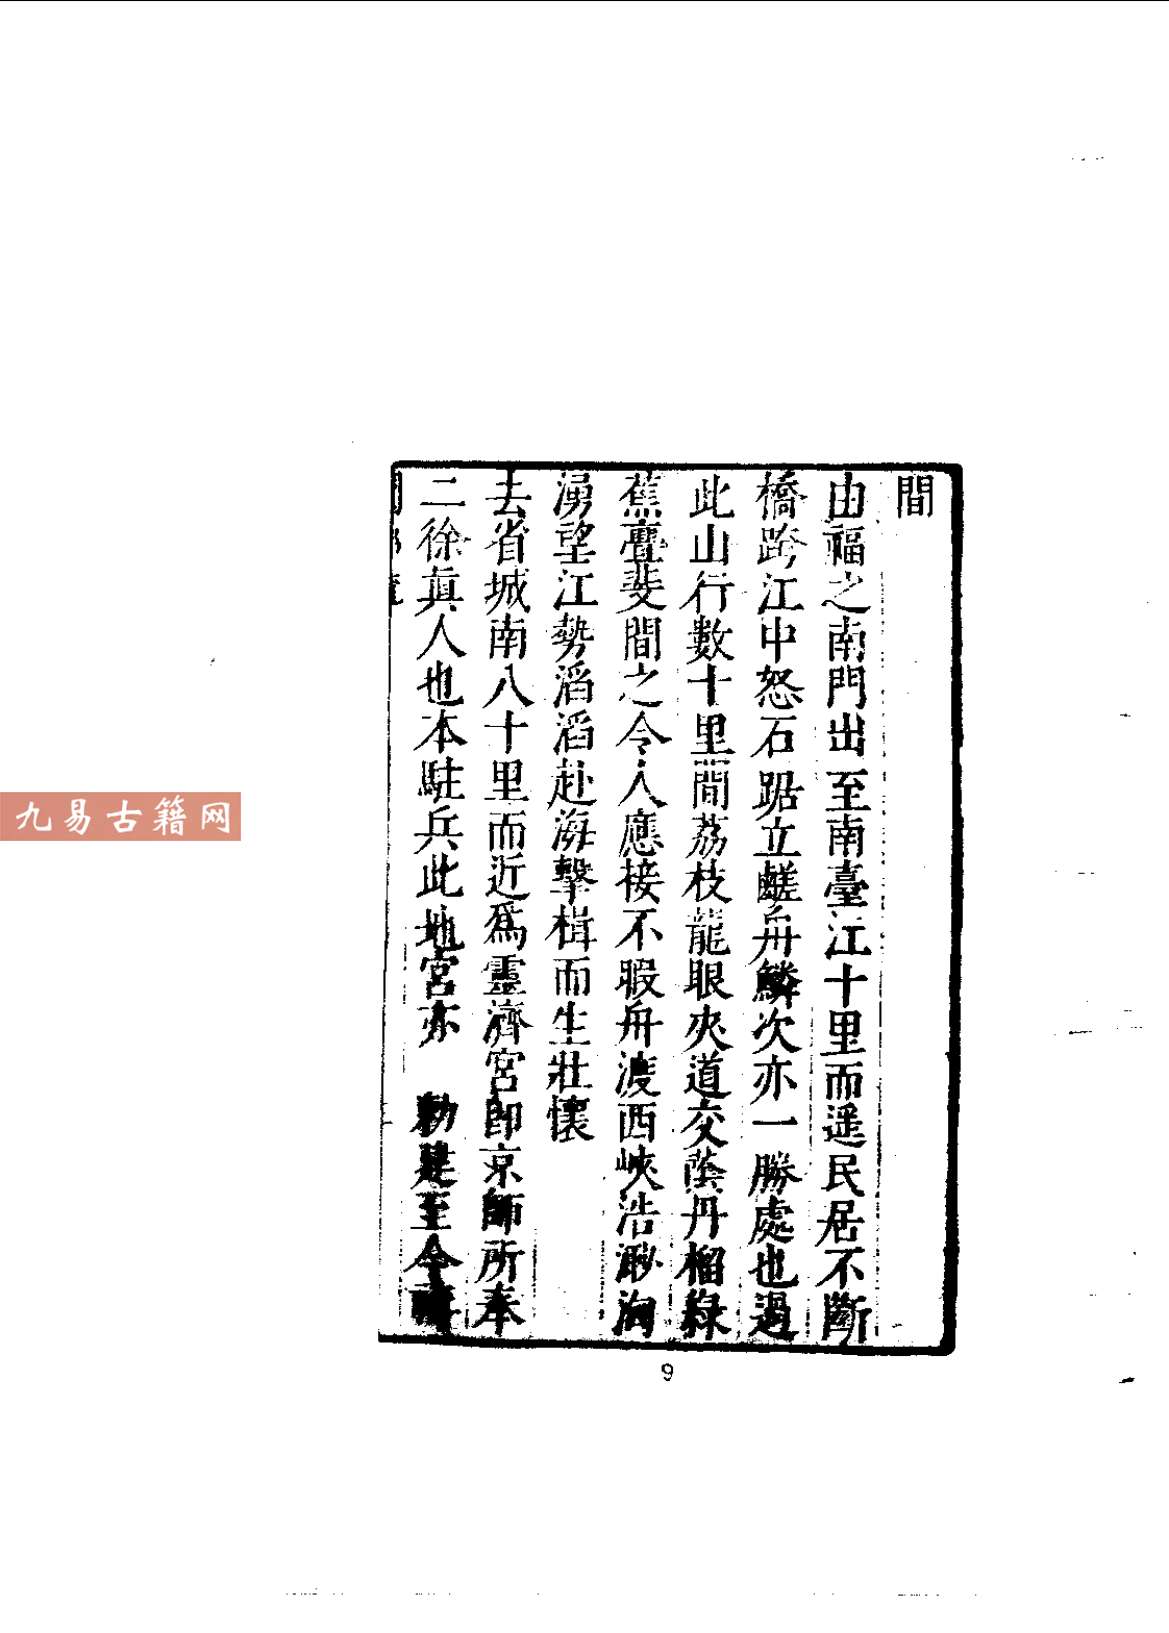 間
由福之南門出至南臺江十里而遥民居不斷
橋跨江中怒石踞立鹺舟鱗次亦一勝處也過
此山行數十里蕳荔枝龍眼夾道交蔭丹榴綠
蕉亹斐間之令人應接不暇舟渡西峽浩渺洶
湧望江勢滔滔赴海擊楫而生壯懷
去省城南八十里而近爲靈濟宮卽京師所奉
二徐眞人也本駐兵此地宮亦 勅建至今
九易古籍网
9